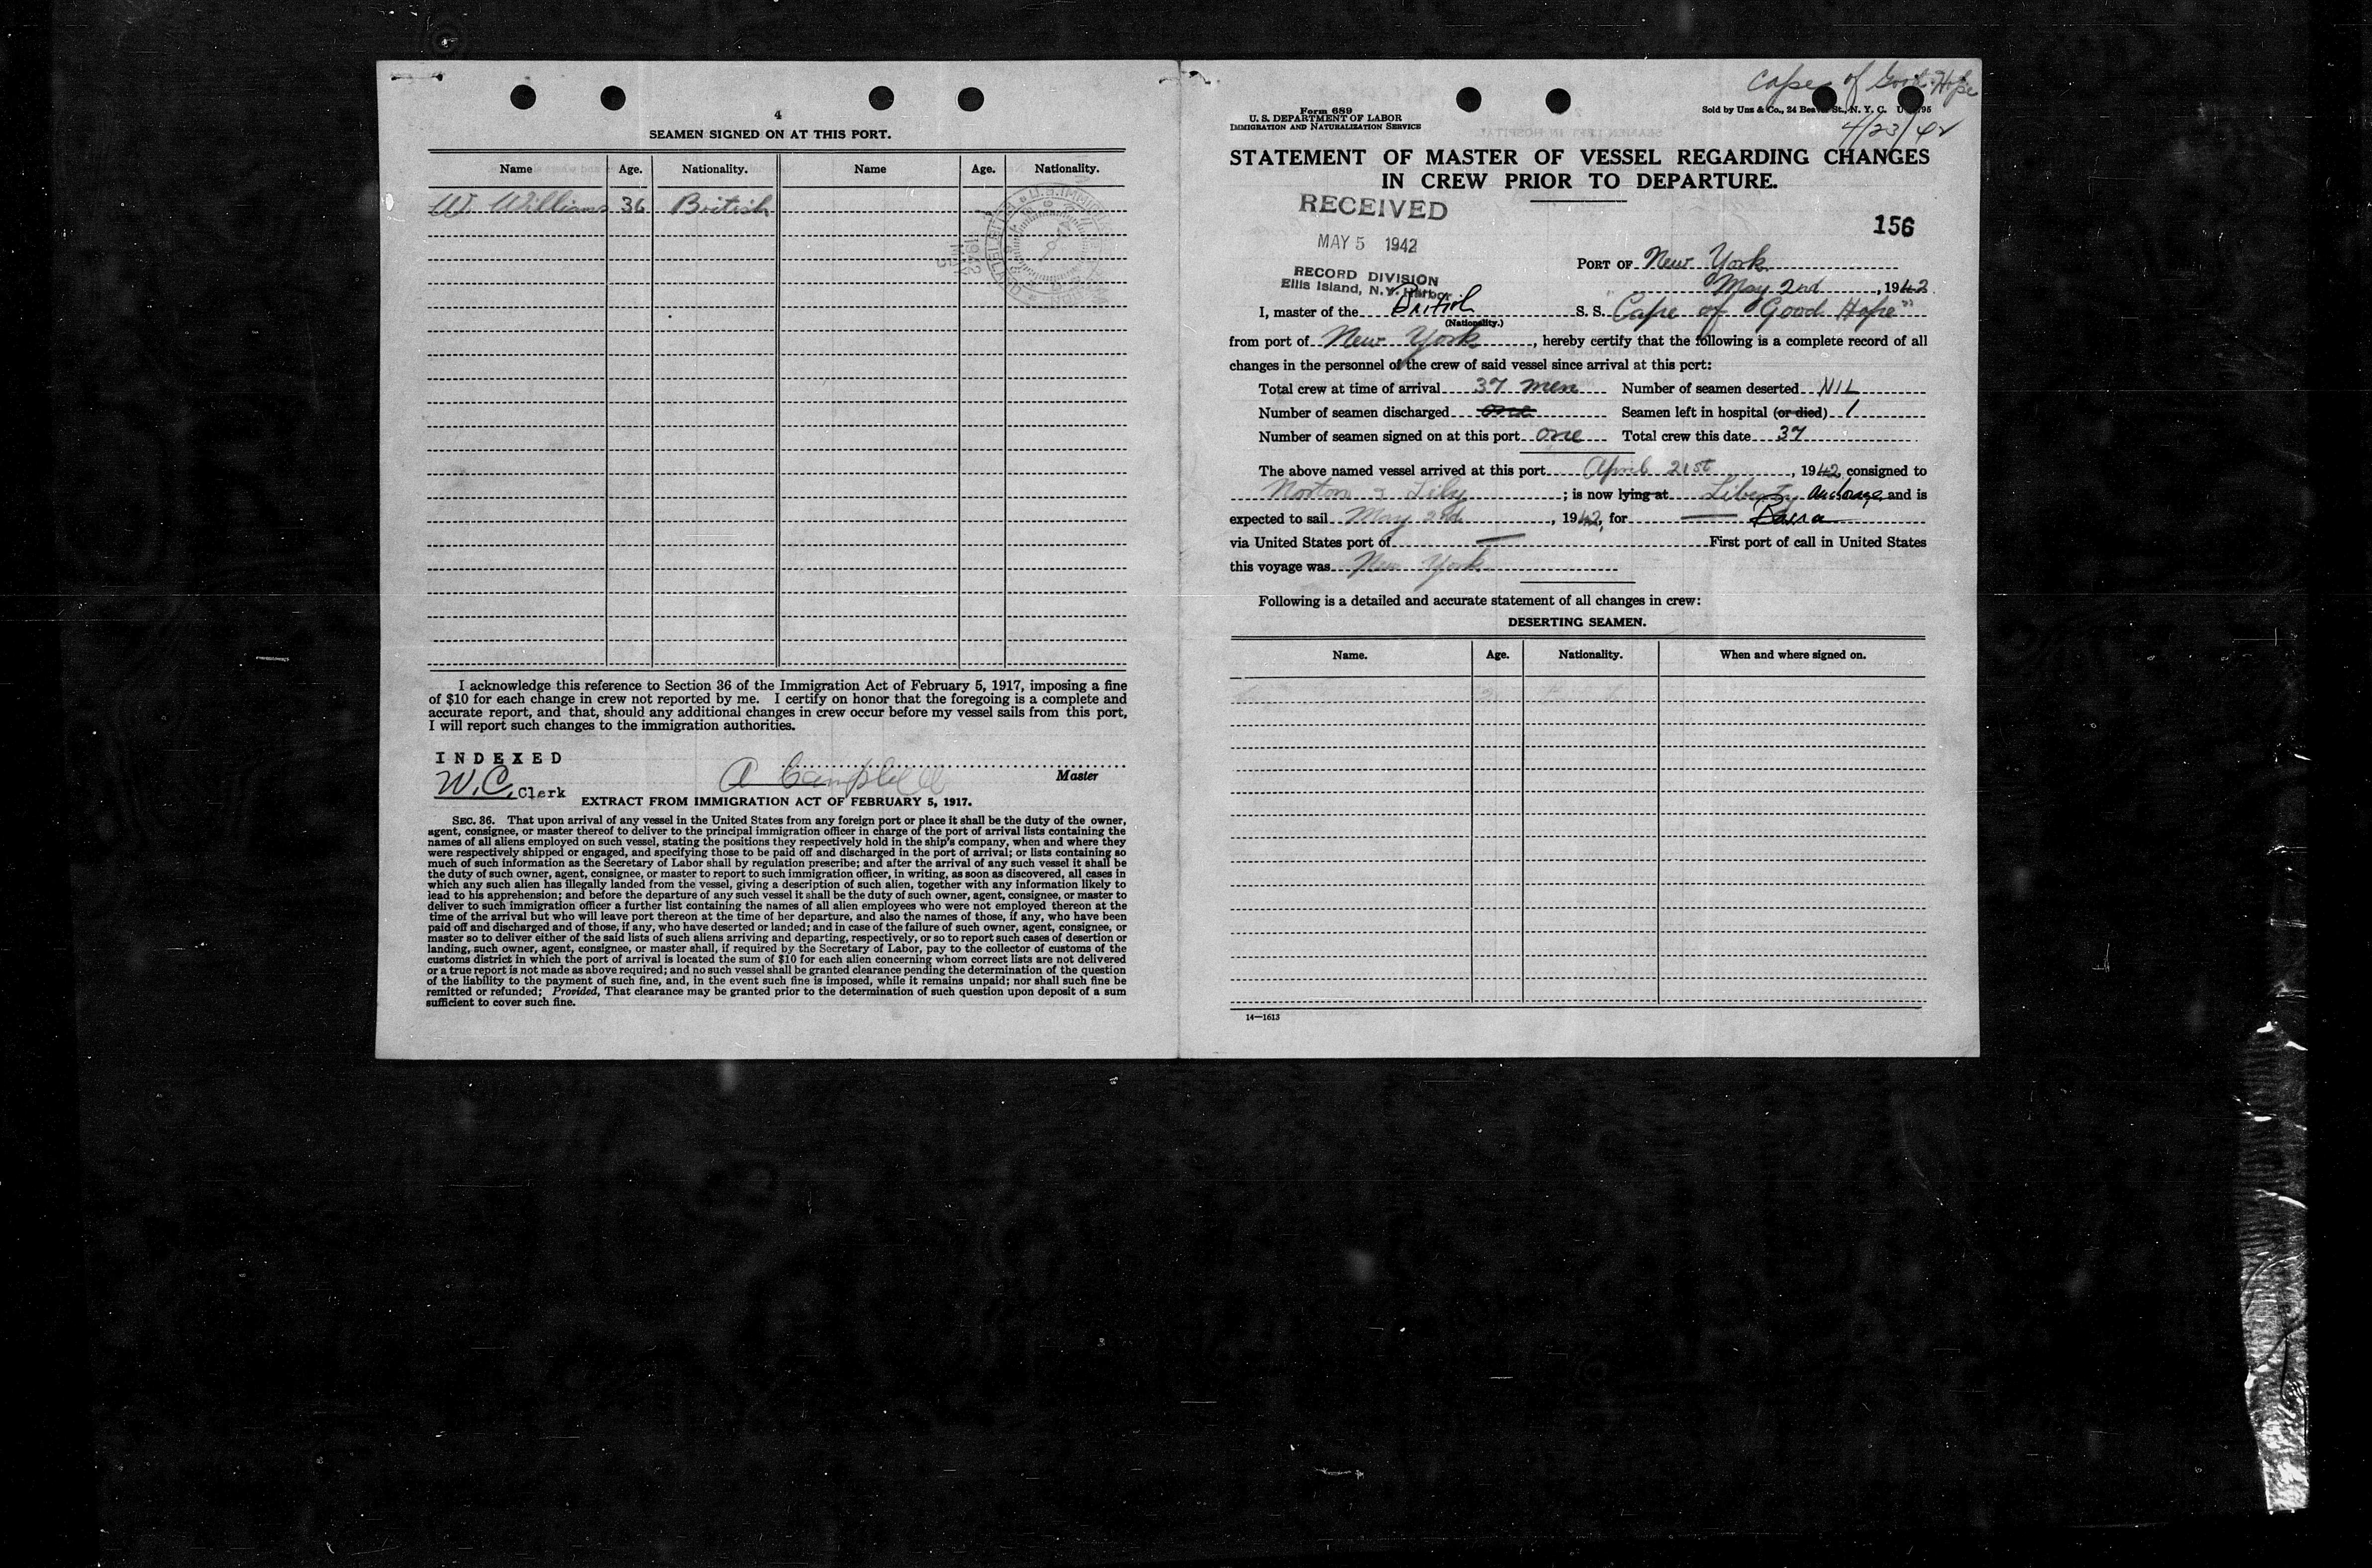 4
SEAMEN SIGNED ON AT THIS PORT.
Name Age. Nationality. Name Age. Nationality.
W. Williams 36 British
I acknowledge this reference to Section 36 of the Immigration Act of February 5, 1917, imposing a fine
of $10 for each change in crew not reported by me. I certify on honor that the foregoing is a complete and
accurate report, and that, should any additional changes in crew occur before my vessel sails from this port,
I will report such changes to the immigration authorities.
INDEXED
A Campbell Master
W.C. Clerk
EXTRACT FROM IMMIGRATION ACT OF FEBRUARY 5, 1917.
SEC. 36. That upon arrival of any vessel in the United States from any foreign port or place it shall be the duty of the owner,
agent, consignee, or master thereof to deliver to the principal immigration officer in charge of the port of arrival lists containing the
names of all aliens employed on such vessel, stating the positions they respectively hold in the ship's company, when and where they
were respectively shipped or engaged, and specifying those to be paid off and discharged in the port of arrival; or lists containing so
much of such information as the Secretary of Labor shall by regulation prescribe; and after the arrival of any such vessel it shall be
the duty of such owner, agent, consignee, or master to report to such immigration officer, in writing, as soon as discovered, all cases in
which any such alien has illegally landed from the vessel, giving a description of such alien, together with any information likely to
lead to his apprehension; and before the departure of any such vessel it shall be the duty of such owner, agent, consignee, or master to
deliver to such immigration officer a further list containing the names of all alien employees who were not employed thereon at the
time of the arrival but who will leave port thereon at the time of her departure, and also the names of those, if any, who have been
paid off and discharged and of those, if any, who have deserted or landed; and in case of the failure of such owner, agent, consignee, or
master so to deliver either of the said lists of such aliens arriving and departing, respectively, or so to report such cases of desertion or
landing, such owner, agent, consignee, or master shall, if required by the Secretary of Labor, pay to the collector of customs of the
customs district in which the port of arrival is located the sum of $10 for each alien concerning whom correct lists are not delivered
or a true report is not made as above required; and no such vessel shall be granted clearance pending the determination of the question
of the liability to the payment of such fine, and, in the event such fine is imposed, while it remains unpaid; nor shall such fine be
remitted or refunded; Provided, That clearance may be granted prior to the determination of such question upon deposit of a sum
sufficient to cover such fine.
Cape of Good Hope
4/23/42
Form 689
U. S. DEPARTMENT OF LABOR
IMMIGRATION AND NATURALIZATION SERVICE
Sold by Unz & Co., 24 Beaver St., N. Y. C.
STATEMENT OF MASTER OF VESSEL REGARDING CHANGES
IN CREW PRIOR TO DEPARTURE.
RECEIVED
MAY 5 1942
RECORD DIVISION
Ellis Island, N.Y. Harbor
156
PORT OF New York
May 2nd, 1942
I, master of the British S. S. "Cape of Good Hope"
(Nationality.)
from port of New York, hereby certify that the following is a complete record of all
changes in the personnel of the crew of said vessel since arrival at this port:
Total crew at time of arrival 37 men Number of seamen deserted NIL
Number of seamen discharged one Seamen left in hospital (or died) 1
Number of seamen signed on at this port one Total crew this date 37
The above named vessel arrived at this port April 21st, 1942, consigned to
Norton & Lily; is now lying at Liberty Anchorage, and is
expected to sail May 2nd, 1942, for — Basra
via United States port of — First port of call in United States
this voyage was New York
Following is a detailed and accurate statement of all changes in crew:
DESERTING SEAMEN.
Name. Age. Nationality. When and where signed on.
14—1613